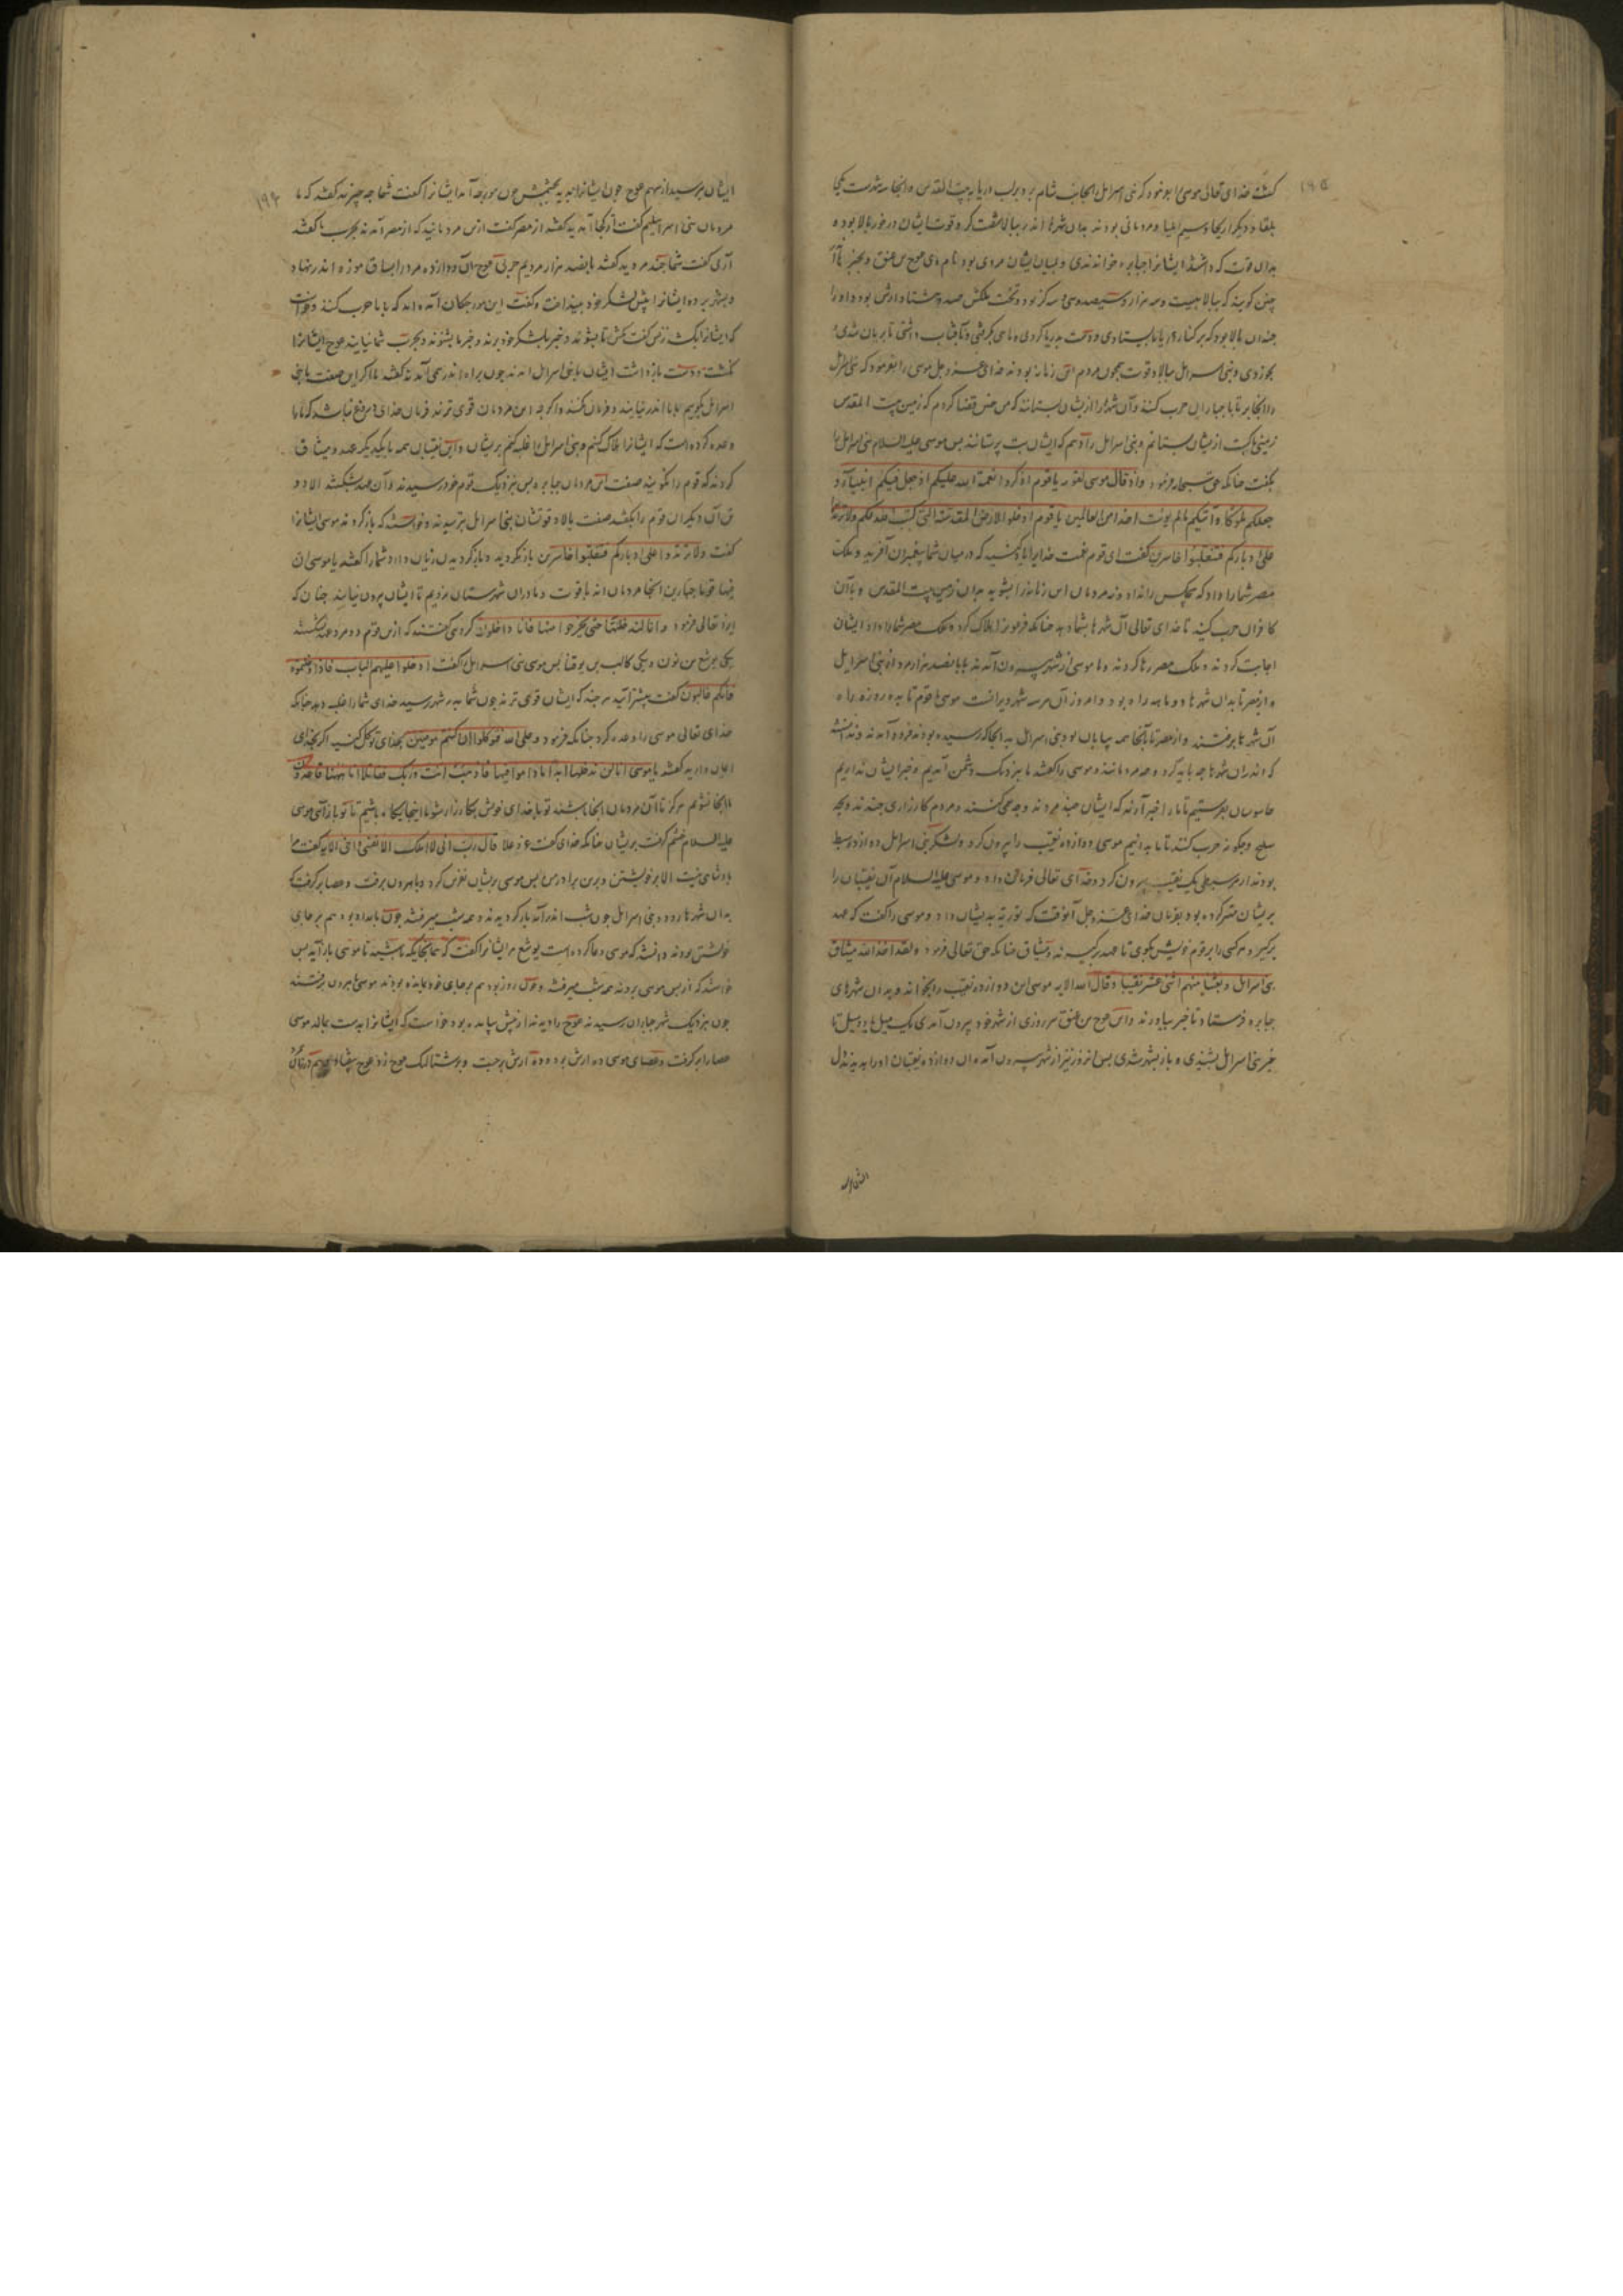 ۱۹۵
گفت خدای تعالی موسی را بفرمود که بنی اسرائیل را بجانب شام برد بر لب دریا به بیت المقدس و آنجا سه شهرست یکی
بلقا و دیگر اریحا و سیم ایلیا و مردمانی بودند بدان شهرها اندر بیابان مشقت کرد و قوت ایشان در خور بالا بوده
بدان قوت که داشتند ایشانرا جبابره خواندندی و بمیان ایشان مردی بود نام وی عوج بن عنق و بخبرها آ
چنین گویند که ببالا بیست و سه هزار و سیصد و سی و سه گز بود
چندان بالا بود که بر کنار دریا بایستادی و دست بدریا کردی و ماهی بگرفتی و بآفتاب داشتی تا بریان شدی و
بخوردی و بنی اسرائیل ببالا و قوت همچون مردم این زمانه بودند خدای عز و جل موسی را بفرمود که بنی اسرائیل
را آنجا بر تا با جباران حرب کنند و آن شهر را از ایشان بستانند که من چنین قضا کردم که زمین بیت المقدس
زمینی پاکست از ایشان بستانم و بنی اسرائیل را دهم که ایشان بت پرستانند پس موسی علیه السلام بنی اسرائیل را
بگفت چنانکه حق سبحانه فرمود واذ قال موسی لقومه یا قوم اذکروا نعمة الله علیکم اذ جعل فیکم انبیاء و
جعلکم ملوکا و آتیکم ما لم یؤت احدا من العالمین یا قوم ادخلوا الارض المقدسة التی کتب الله لکم ولا ترتدوا
علی ادبارکم فتنقلبوا خاسرین گفت ای قوم نعمت خدایرا یاد کنید که در میان شما پیغمبران آفرید و ملک
مصر شما را داد که هیچکس را نداد از مردمان این زمانه برا بشوید بدان زمین بیت المقدس و با آن
کافران حرب کنید تا خدای تعالی آن شهرها بشما دهد چنانکه فرعون را هلاک کرد و ملک مصر شما را داد ایشان
اجابت کردند و ملک مصر رها کردند و با موسی از شهر بیرون آمدند با پانصد هزار مرد از بنی اسرائیل
و از مصر تا بدان شهرها دو ماهه راه بود و امروز آن هر سه شهر ویرانست موسی با قوم تا به ده روزه راه
آن شهرها برفتند و از مصر تا بآنجا همه بیابان بود بنی اسرائیل بدانجا که رسیده بودند فرود آمدند و ندانستند
که اندران شهرها چه باید کرد و چه مردمانند موسی را گفتند ما بنزدیک دشمن آمدیم و خبر ایشان نداریم
جاسوسان بفرستیم تا ما را خبر آرند که ایشان چند مردند و چه می کنند و مردم کارزاری چندند و بچه
سلح و چگونه حرب کنند تا ما بدانیم موسی دوازده نقیب را بیرون کرد و لشکر بنی اسرائیل دوازده سبط
بودند از هر سبطی یک نقیب بیرون کرد و خدای تعالی فرمان داد و موسی علیه السلام آن نقیبان را
بریشان مهتر کرده بود بفرمان خدای عز و جل آنوقت که توریة بدیشان داد و موسی را گفت که عهد
برگیر و هر کسی را بر قوم خویش بگوی تا عهد برگیرند و میثاق چنانکه حق تعالی فرمود ولقد اخذ الله میثاق
بنی اسرائیل وبعثنا منهم اثنی عشر نقیبا وقال الله الایه موسی این دوازده نقیب را بخواند و بدان شهرهای
جبابره فرستاد تا خبر بیاورند و این عوج بن عنق هر روزی از شهر خود بیرون آمدی یک میل یا دو میل تا
خبر بنی اسرائیل بشنیدی و باز بشهر شدی پس آنروز نیز از شهر بیرون آمد و آن دوازده نقیبان او را بدیدند از
۱۹۶
ایشان بپرسید از سهم عوج چون ایشانرا بدید بچشمش چون مورچه آمد ایشانرا گفت شما چه چیزید گفتند که ما
مردمان بنی اسرائیلیم گفت از کجا آمدید گفتند از مصر گفت از آن مردمانید که از مصر آمدند بحرب ما گفتند
آری گفت شما چند مردید گفتند پانصد هزار مردیم حربی عوج آن دوازده مرد را بساق موزه اندر نهاد
و بشهر برد و ایشانرا پیش لشکر خود بینداخت و گفت این مورچگان آمده اند که با ما حرب کنند و خواست
که ایشانرا بکشد زنش گفت مکش تا بشوند و خبر ما بلشکر خود برند و خبر ما بشنوند و بحرب شما نیایند عوج ایشانرا
نکشت و دست بازداشت ایشان با بنی اسرائیل آمدند چون براه اندر همی آمدند گفتند ما اگر این صفت با بنی
اسرائیل بگوییم با ما اندر نیایند و فرمان نکنند و اگر چه این مردمان قوی ترند فرمان خدای دروغ نباشد که ما را
وعده کرده است که ایشانرا هلاک کنم و بنی اسرائیل را غلبه کنم بریشان و این نقیبان همه با یکدیگر عهد و میثاق
کردند که قوم را نگویند صفت این مردمان جبابره پس بنزدیک قوم خود رسیدند و آن عهد بشکستند الا دو
تن آن دیگران قوم را بگفتند صفت بالا و قوتشان بنی اسرائیل بترسیدند و خواستند که بازگردند موسی ایشانرا
گفت ولا ترتدوا علی ادبارکم فتنقلبوا خاسرین بازنگردید و بازگردیدن زیان دارد شما را گفتند یا موسی ان
فیها قوما جبارین آنجا مردمان اند با قوت و مادران شهرستان نرویم تا ایشان بیرون نیایند چنان که
ایزد تعالی فرمود وانا لن ندخلها حتی یخرجوا منها فانا داخلون کردمی گفتند که ازین قوم دو مرد عهد نشکستند
یکی یوشع بن نون و یکی کالب بن یوقنا پس موسی بنی اسرائیل را گفت ادخلوا علیهم الباب فاذا دخلتموه
فانکم غالبون گفت پیشتر آیید هر چند که ایشان قوی ترند چون شما بدر شهر رسید خدای شما را غلبه دهد چنانکه
خدای تعالی موسی را وعده کرد چنانکه فرمود وعلی الله فتوکلوا ان کنتم مومنین بخدای توکل کنید اگر بخدای
ایمان دارید گفتند یا موسی انا لن ندخلها ابدا ما داموا فیها فاذهب انت وربک فقاتلا انا ههنا قاعدون
ما آنجا نشویم هرگز تا آن مردمان آنجا باشند تو با خدای خویش بکارزار شو ما اینجایگاه باشیم تا تو باز آئی موسی
علیه السلام خشم گرفت بریشان چنانکه خدای گفت عز وعلا قال رب انی لا املک الا نفسی واخی الایه گفت مرا
پادشاهی نیست الا بر خویشتن و برین برادر من پس موسی بریشان نفرین کرد و با هرون برفت و عصا برگرفت که
بدان شهرها رود و بنی اسرائیل چون شب اندر آمد بار کردند و همه شب میرفتند چون بامداد بود هم بر جای
خویشتن بودند دانستند که موسی دعا کرده است یوشع مر ایشانرا گفت که هم اینجایگه باشید تا موسی باز آید پس
خواستند که از پس موسی بروند همه شب میرفتند و چون روز بود هم بر جای خود مانده بودند موسی و هرون برفتند
چون بنزدیک شهر جباران رسیدند عوج را دیدند از پیش بیامده بود و خواست که ایشانرا بدست بمالد موسی
عصا را برگرفت و عصای موسی ده ارش بود و ده ارش برجست و بر شتالنگ عوج زد عوج بیفتاد